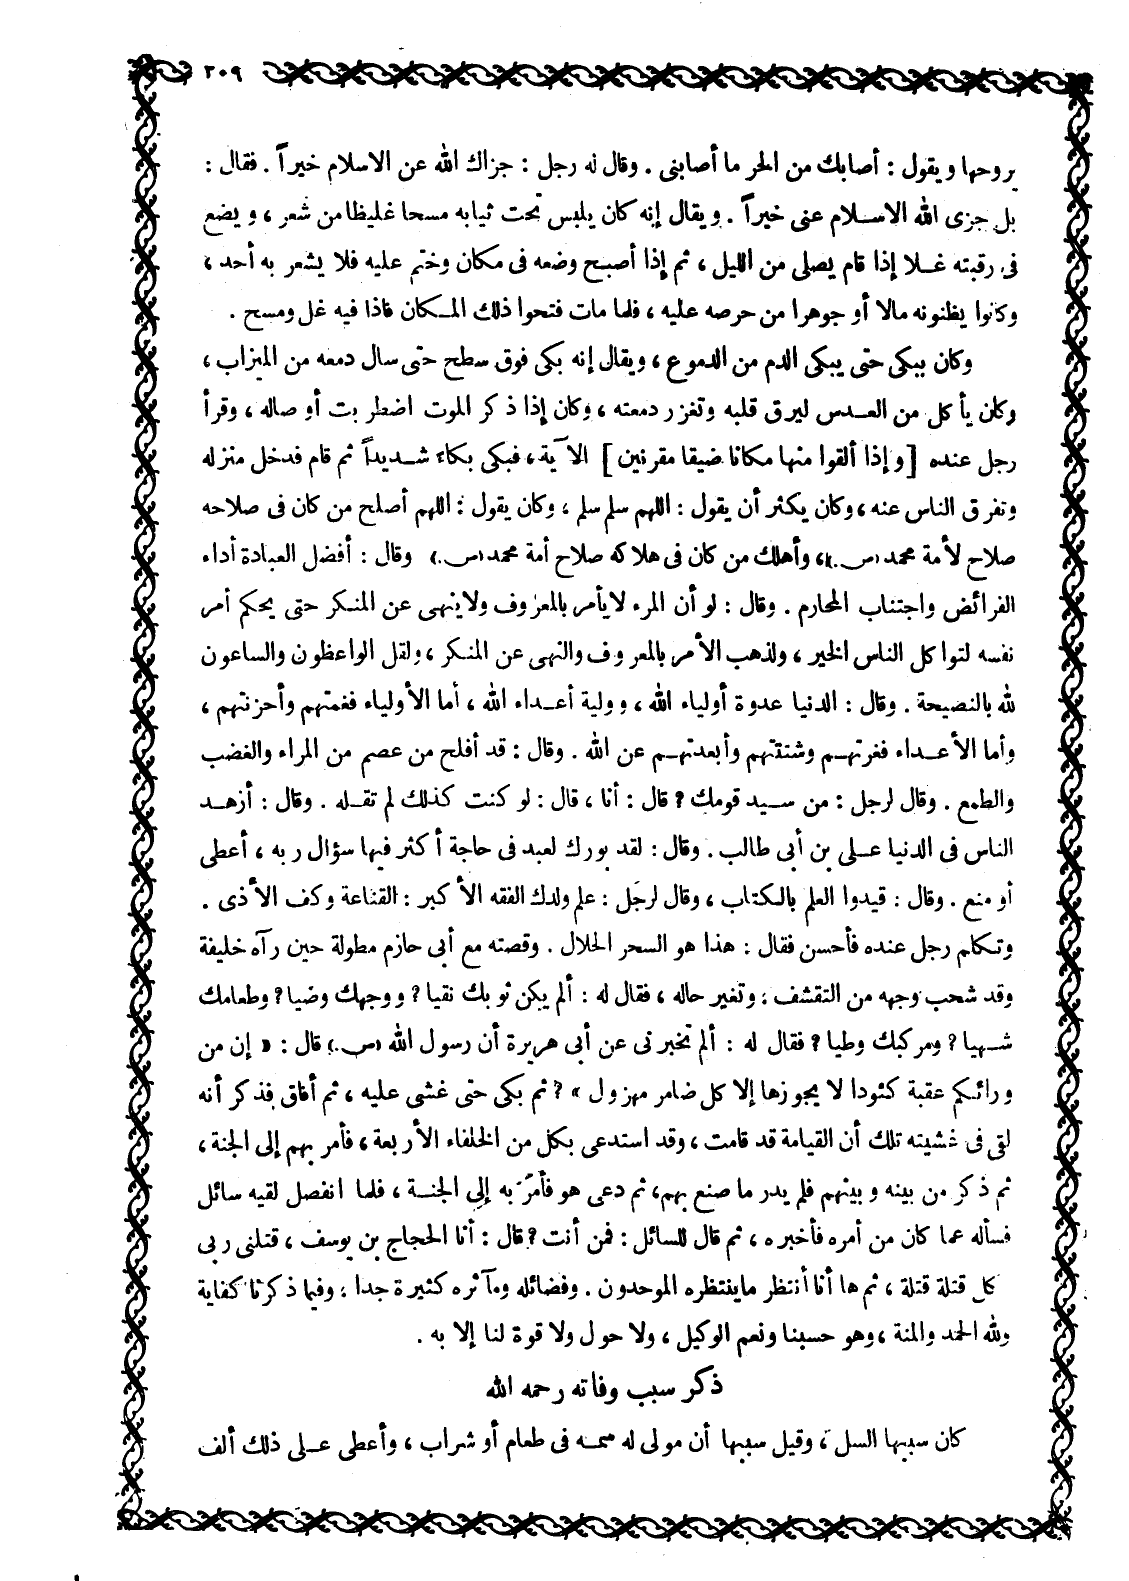 ٢٠٩
يروحها ويقول : أصابك من الحر ما أصابنى . وقال له رجل : جزاك الله عن الاسلام خيراً . فقال :
بل جزى الله الاسلام عنى خيراً . ويقال إنه كان يلبس تحت ثيابه مسحا غليظا من شعر ، ويضع
فى رقبته غلا إذا قام يصلى من الليل ، ثم إذا أصبح وضعه فى مكان وختم عليه فلا يشعر به أحد ،
وكانوا يظنونه مالا أو جوهرا من حرصه عليه ، فلما مات فتحوا ذلك المكان فاذا فيه غل ومسح .
وكان يبكى حتى يبكى الدم من الدموع ، ويقال إنه بكى فوق سطح حتى سال دمعه من الميزاب ،
وكان يأكل من العدس ليرق قلبه وتغزر دمعته ، وكان إذا ذكر الموت اضطربت أوصاله ، وقرأ
رجل عنده [ وإذا ألقوا منها مكانا ضيقا مقرنين ] الآية ، فبكى بكاء شديداً ثم قام فدخل منزله
وتفرق الناس عنه ، وكان يكثر أن يقول : اللهم سلم سلم ، وكان يقول : اللهم أصلح من كان فى صلاحه
صلاح لأمة محمد (ص.) ، وأهلك من كان فى هلاكه صلاح أمة محمد (ص.) وقال : أفضل العبادة أداء
الفرائض واجتناب المحارم . وقال : لو أن المرء لا يأمر بالمعروف ولا ينهى عن المنكر حتى يحكم أمر
نفسه لتواكل الناس الخير ، ولذهب الأمر بالمعروف والنهى عن المنكر ، ولقل الواعظون والساعون
لله بالنصيحة . وقال : الدنيا عدوة أولياء الله ، وولية أعداء الله ، أما الأولياء فغمتهم وأحزنتهم ،
وأما الأعداء فغرتهم وشتتتهم وأبعدتهم عن الله . وقال : قد أفلح من عصم من المراء والغضب
والطمع . وقال لرجل : من سيد قومك ? قال : أنا ، قال : لو كنت كذلك لم تقله . وقال : أزهد
الناس فى الدنيا على بن أبى طالب . وقال : لقد بورك لعبد فى حاجة أكثر فيها سؤال ربه ، أعطى
أو منع . وقال : قيدوا العلم بالكتاب ، وقال لرجل : علم ولدك الفقه الأكبر : القناعة وكف الأذى .
وتكلم رجل عنده فأحسن فقال : هذا هو السحر الحلال . وقصته مع أبى حازم مطولة حين رآه خليفة
وقد شحب وجهه من التقشف ، وتغير حاله ، فقال له : ألم يكن ثوبك نقيا ? ووجهك وضيا ? وطعامك
شهيا ? ومركبك وطيا ? فقال له : ألم تخبرنى عن أبى هريرة أن رسول الله (ص.) قال : « إن من
ورائكم عقبة كئودا لا يجوزها إلا كل ضامر مهزول » ? ثم بكى حتى غشى عليه ، ثم أفاق فذكر أنه
لقى فى غشيته تلك أن القيامة قد قامت ، وقد استدعى بكل من الخلفاء الأربعة ، فأمر بهم إلى الجنة ،
ثم ذكر من بينه وبينهم فلم يدر ما صنع بهم ، ثم دعى هو فأمر به إلى الجنة ، فلما انفصل لقيه سائل
فسأله عما كان من أمره فأخبره ، ثم قال للسائل : فمن أنت ? قال : أنا الحجاج بن يوسف ، قتلنى ربى
كل قتلة قتلة ، ثم ها أنا أنتظر ما ينتظره الموحدون . وفضائله ومآثره كثيرة جدا ، وفيما ذكرنا كفاية
ولله الحمد والمنة ، وهو حسبنا ونعم الوكيل ، ولا حول ولا قوة لنا إلا به .
ذكر سبب وفاته رحمه الله
كان سببها السل ، وقيل سببها أن مولى له سمه فى طعام أو شراب ، وأعطى على ذلك ألف